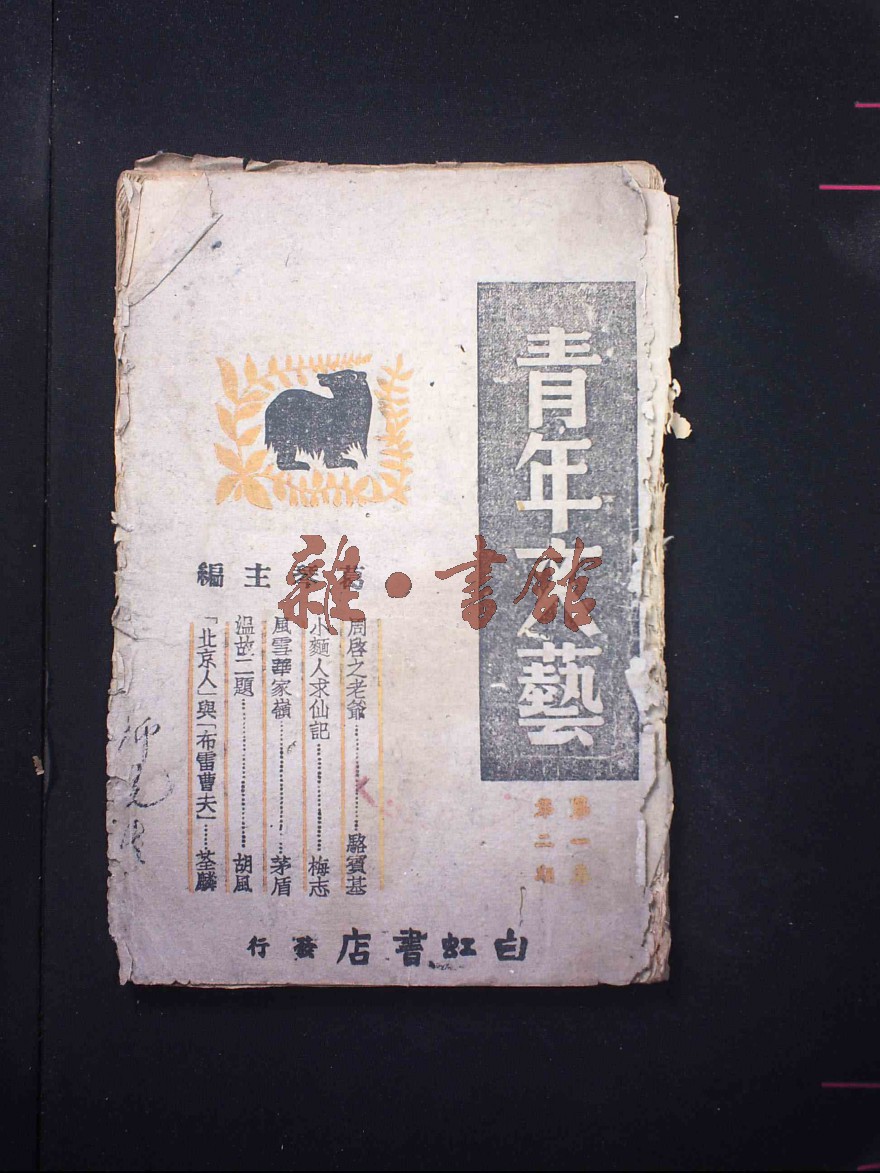 青年文藝
第一卷
第二期
葛琴主編
周啓之老爺……駱賓基
小麵人求仙記……梅志
風雪華家嶺……茅盾
温故二題……胡風
「北京人」與「布雷曹夫」……荃麟
白虹書店發行
雜·書館